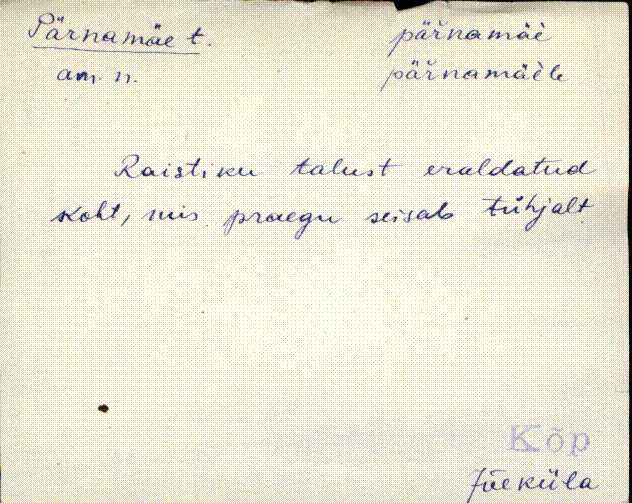 Pärnamäe t. pär̆namäè
am. n. pär̆namäèle
Raistiku talust eraldatud
koht, mis praegu seisab tühjalt
Kõp
Jõeküla